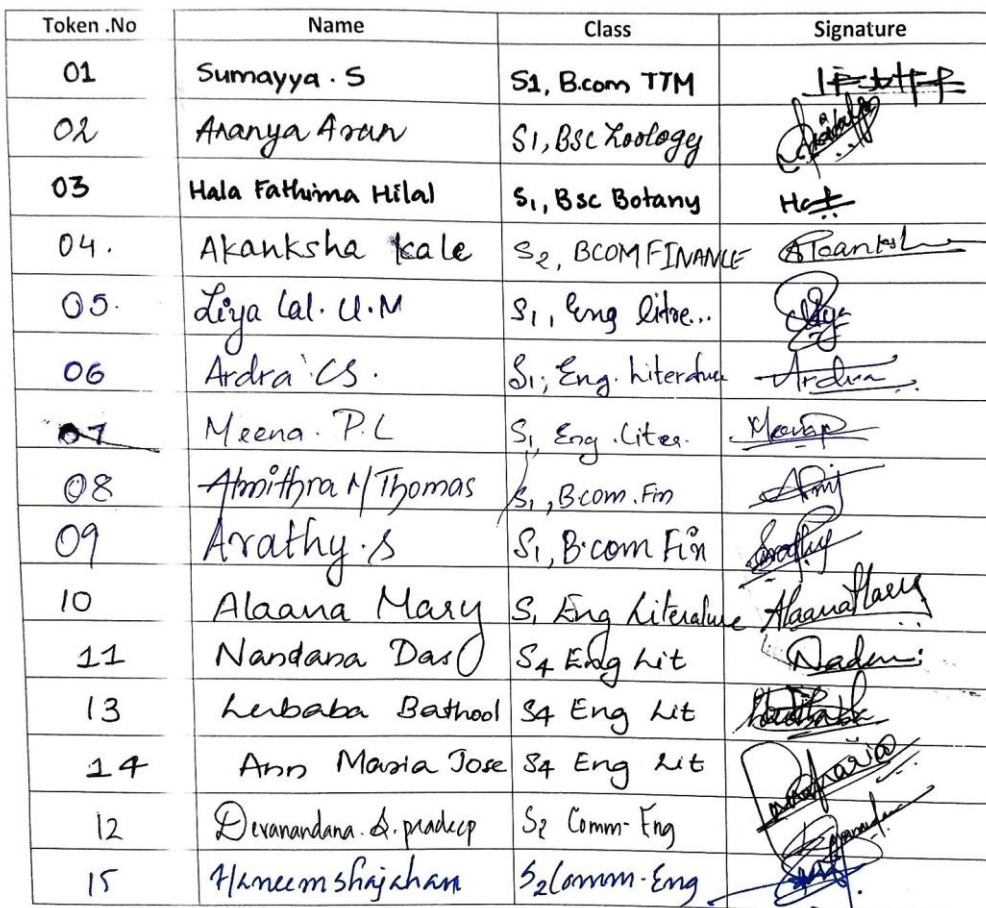 Token .No Name Class Signature
01 Sumayya . S S1, B.com TTM
02 Ananya Arun S1, BSc Zoology
03 Hala Fathima Hilal S1, Bsc Botany
04. Akanksha kale S2, BCOM FINANCE Akanksh
05. Liya Lal. U.M S1, Eng litre... Liya
06 Ardra CS. S1, Eng. Literature Ardra
07 Meena. P.L S1, Eng. Liter.
08 M Thomas S1, Bcom. Fin
09 Arathy. S S1, B.com Fin Arathy
10 Alaana Mary S1 Eng Literature Alaana Mary
11 Nandana Das S4 Eng Lit
13 Lubaba Bathool S4 Eng Lit
14 Ann Maria Jose S4 Eng Lit
12 Devanandana. S. pradeep S2 Comm-Eng
15 Haneem Shajahan S2 Comm-Eng